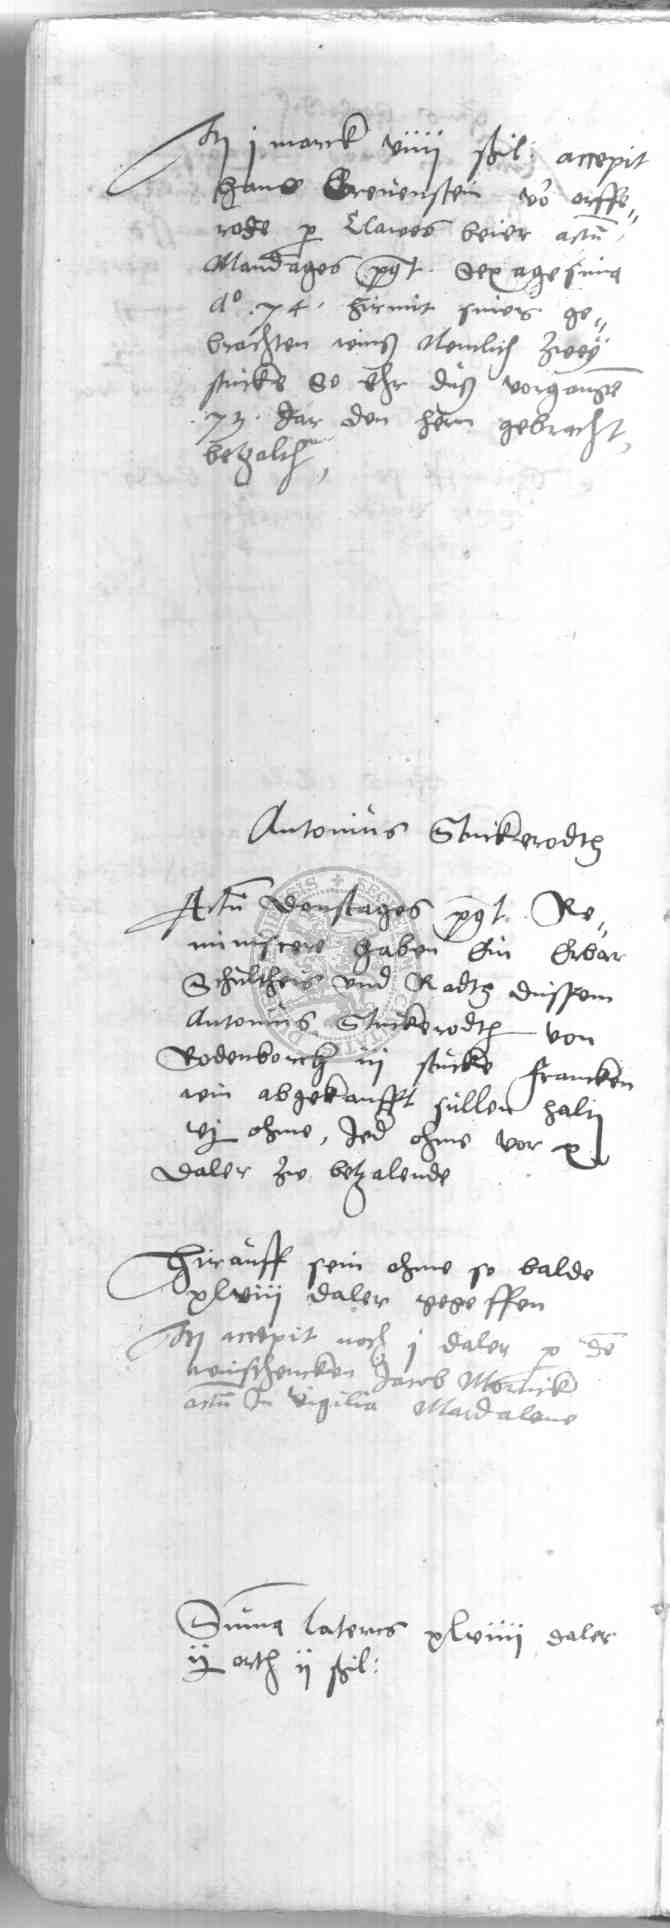 Itz j marck viiij ßil: accepit
Hans Grevenstein vō orffe„
rode p Clawes beier actū
Mandages pꝰt. Sexagesima
Aᵒ .74. hirmit seiner ge„
brachten weins Nemlich zwey
stucke So Ehr diß vorgangē
.73. Jar den hern gebracht,
betzalth,
Antonius Stuckerodth
Actū Donstages pꝰt. Re„
miniscere haben Ein Erbar
Schultheis und Radth dussem
Antonius Stuckerodth von
Rodenborch iij stucke Francken
wein abgekaufft sullen halten
vj ohme, Jed ohme vor x
daler zu betzalende
Hirauff sein ohme so balde
xlviij daler gegeffen
Itz accepit noch j daler p dē
weinschencken Jacob Mornick
actū In vigilia Mardalene
Suma lateris xlviiij daler
ij orth ij ßil: